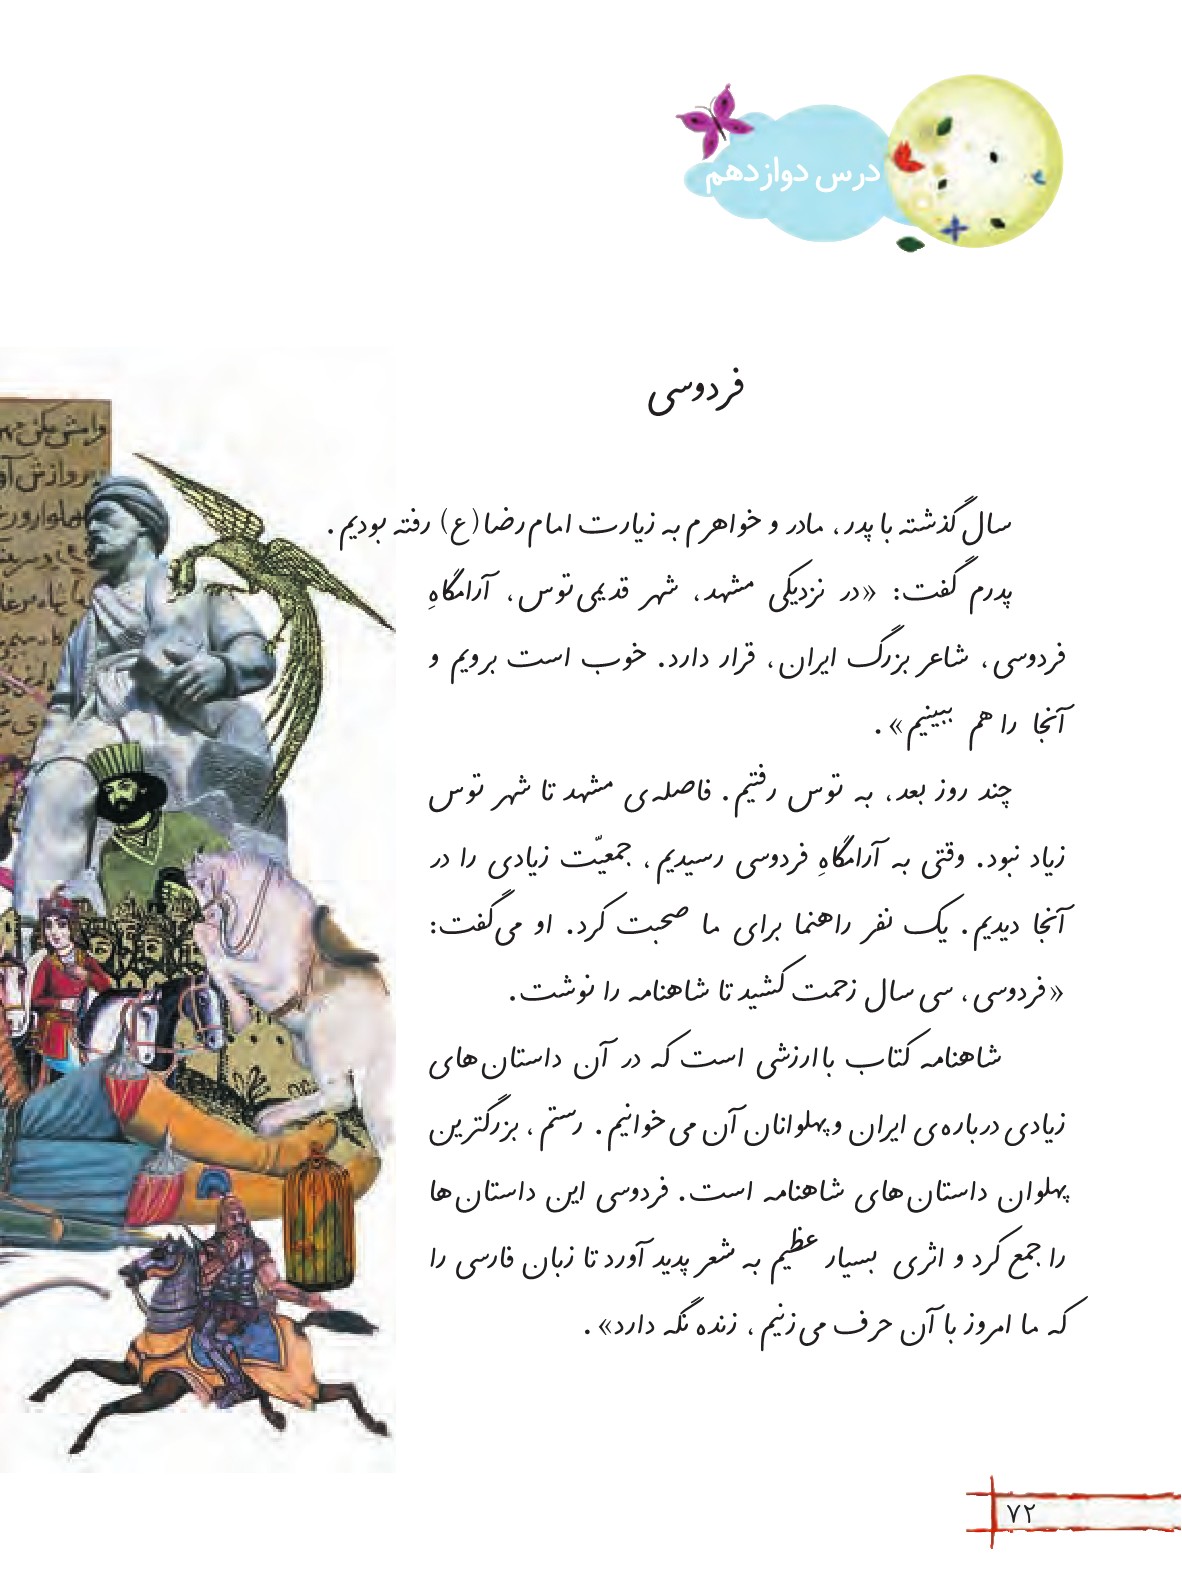 درس دوازدهم
فردوسی
سال گذشته با پدر، مادر و خواهرم به زیارت امام رضا (ع) رفته بودیم.
پدرم گفت: «در نزدیکی مشهد، شهر قدیمی توس، آرامگاهِ
فردوسی، شاعر بزرگ ایران، قرار دارد. خوب است برویم و
آنجا را هم ببینیم».
چند روز بعد، به توس رفتیم. فاصله‌ی مشهد تا شهر توس
زیاد نبود. وقتی به آرامگاهِ فردوسی رسیدیم، جمعیّت زیادی را در
آنجا دیدیم. یک نفر راهنما برای ما صحبت کرد. او می‌گفت:
«فردوسی، سی سال زحمت کشید تا شاهنامه را نوشت.
شاهنامه کتاب باارزشی است که در آن داستان‌های
زیادی درباره‌ی ایران و پهلوانان آن می‌خوانیم. رستم، بزرگترین
پهلوان داستان‌های شاهنامه است. فردوسی این داستان‌ها
را جمع کرد و اثری بسیار عظیم به شعر پدید آورد تا زبان فارسی را
که ما امروز با آن حرف می‌زنیم، زنده نگه دارد».
۷۲